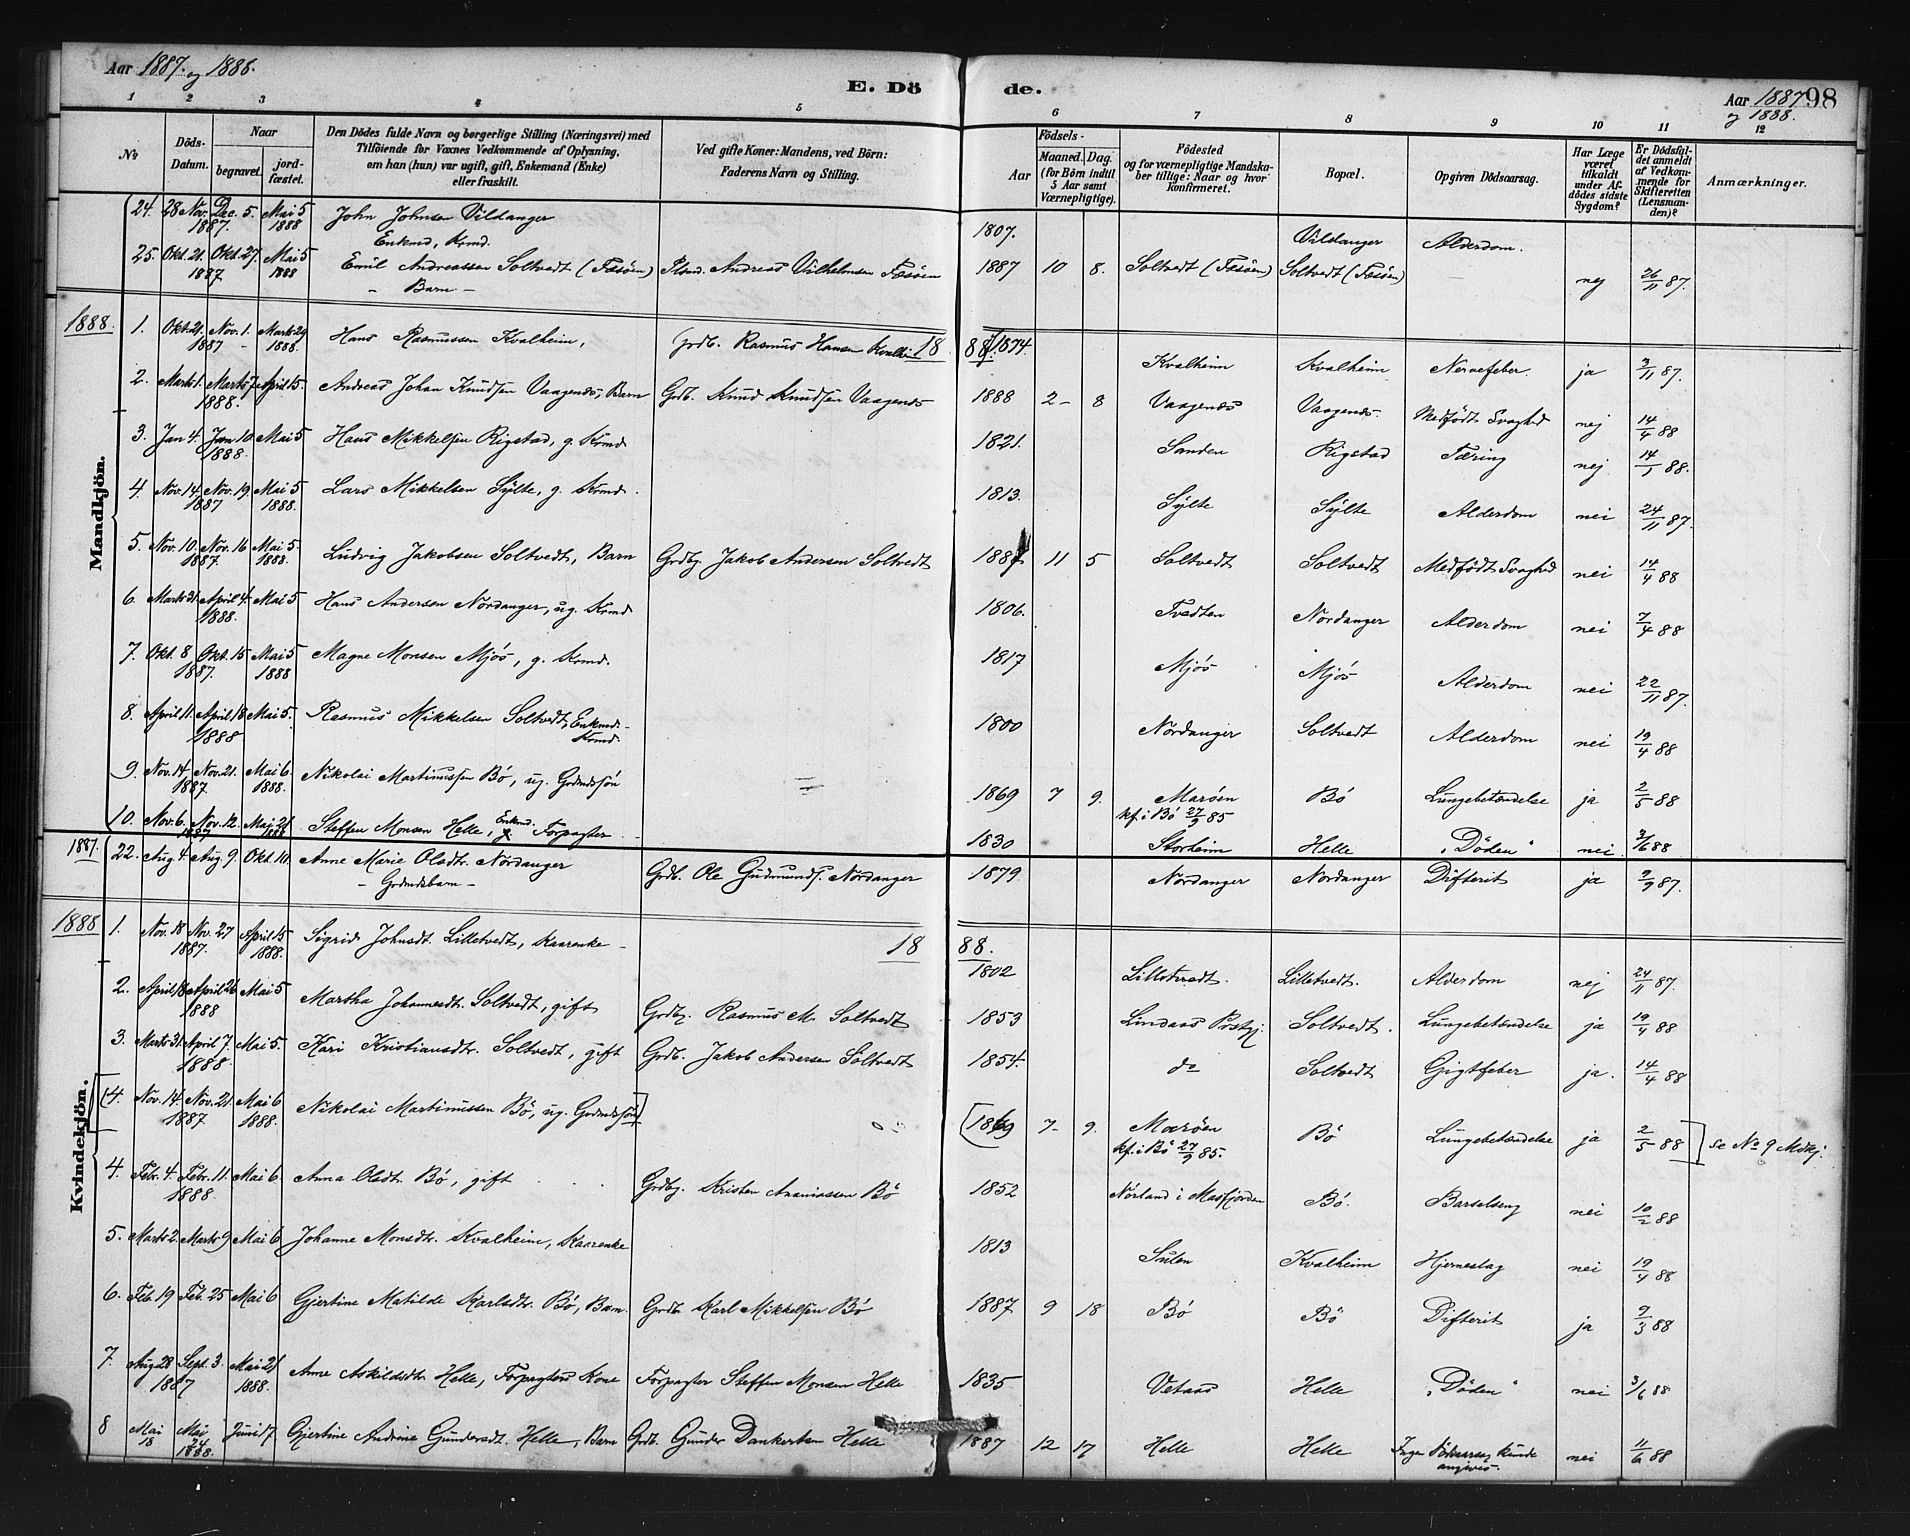 Aar 1887. og 1888.
E. Dö de.
Aar 1887 og 1888. 98
1 2 3 4 5 6 7 8 9 10 11 12
No
Döds-Datum.
Naar
begravet.
jord-fæstet.
Den Dödes fulde Navn og borgerlige Stilling (Næringsvei) med
Tilföiende for Voxnes Vedkommende af Oplysning,
om han (hun) var ugift, gift, Enkemand (Enke)
eller fraskilt.
Ved gifte Koner: Mandens, ved Börn:
Faderens Navn og Stilling.
Födsels-
Aar
Maaned. Dag.
(for Börn indtil
5 Aar samt
Værnepligtige).
Födested
og for værnepligtige Mandska-
ber tillige: Naar og hvor
konfirmeret.
Bopæl.
Opgiven Dödsaarsag.
Har Læge
været
tilkaldt
under Af-
dödes sidste
Sygdom?
Er Dödsfal-
det anmeldt
af Vedkom-
mende for
Skifteretten
(Lensman-
den)?
Anmærkninger.
Mandkjön.
24. 28 Nov. 1887. Dec. 5. Mai 5 1888 John Johnsen Vildanger Enkmd, Krmd. 1807. Vildanger Alderdom.
25. Okt. 21. 1887 Okt. 27. Mai 5 1888 Emil Andreassen Soltvedt (Fæsöen) - Barn - Plsmd. Andreas Vilhelmsen Fæsöen 1887 10 8. Soltvedt (Fæsöen) Soltvedt (Fæsöen) nej 26/11 87.
1888. 1888.
1. Okt. 21. 1887 Nov. 1. Marts 29 1888. Hans Rasmussen Kvalheim, Grdb. Rasmus Hansen Kvalh. 1874. Kvalheim Kvalheim Nervefeber. ja 3/11 87.
2. Marts 1. Marts 7. 1888. April 15. Andreas Johan Knudsen Vaagenæs, Barn Grdb. Knud Knudsen Vaagenæs 1888 2 - 8 Vaagenæs Vaagenæs. Medfödt Svaghed nej 14/4 88
3. Jan 4. Jan 10. 1888. Mai 5 Hans Mikkelsen Rigstad, g. Krmd 1821. Sanden Rigstad Tæring nej 14/1 88.
4. Nov. 14. Nov. 19. 1887 Mai 5 1888. Lars Mikkelsen Sylte, g. Krmd. 1813. Sylte Sylte Alderdom nei 24/11 87.
5. Nov. 10. Nov. 16 1887. Mai 5. 1888. Ludvig Jakobsen Soltvedt, Barn Grdbg. Jakob Andersen Soltvedt 1887 11 5 Soltvedt Soltvedt Medfödt Svaghed nei 14/4 88
6. Marts 31. April 4. 1888. Mai 5 Hans Andersen Nordanger, ug. Krmd 1806. Tvedten Nordanger Alderdom nei 7/4 88
7. Okt. 8 Okt. 15 1887. Mai 5 1888 Magne Monsen Mjös, g. Krmd. 1817 Mjös Mjös Alderdom nei 22/11 87.
8. April 11. April 18 1888 Mai 5. Rasmus Mikkelsen Soltvedt, Enkmd. Krmd. 1800 Nordanger Soltvedt Alderdom nei 19/4 88
9. Nov. 14 1887. Nov. 21. Mai 6. 1888. Nikolai Martinussen Bö, ug. Grdmdssön 1869 7 9. Maröen kf. i Bö 27/9 85 Bö Lungebetændelse ja 2/5 88
10. Nov. 6. Nov. 12. 1887 Mai 21 1888 Steffen Monsen Helle, Enkmd. Forpagter 1830 Storheim Helle "Döden" nei 3/6 88
1887. 22. Aug 4. Aug. 9. Okt. 10. Anne Marie Olsdtr. Nordanger - Grdmdsbarn - Grdb. Ole Gudmunds. Nordanger 1879 Nordanger Nordanger Difterit ja 9/9 87.
Kvindekjön.
1888 1888.
1. Nov. 18 1887. Nov. 27 April 15 1888. Sigrid Johnsdt. Lilletvedt, Kaarenke 1802 Lilletvedt. Lilletvedt. Alderdom nej 24/11 87.
2. April 18 April 26 1888 Mai 5 Martha Johannesdtr. Soltvedt, gift Grdbg. Rasmus M. Soltvedt 1853 Lindaas Prstgj. Soltvedt. Lungebetændelse ja 19/4 88
3. Marts 31. April 7. 1888. Mai 5. Kari Kristiansdtr. Soltvedt, gift Grdb. Jakob Andersen Soltvedt 1854. do Soltvedt Gigtfeber ja. 14/4 88
[4. Nov. 14. Nov. 21. 1887 Mai 6 1888. Nikolai Martinussen Bö, ug. Grdmdssön] [1869 7- 9. Maröen kf. i Bö 27/9 85. Bö Lungebetændelse ja 2/5 88] se No 9 Mdkj.
4. Febr. 4. Febr. 11. 1888. Mai 6 Anna Olsdt. Bö, gift Grdbg. Kristen Ananiassen Bö 1852 Nörland i Masfjorden Bö. Barselseng nei 10/2 88
5. Marts 2. Marts 9 Mai 6 Johanne Monsdtr. Kvalheim, Kaarenke 1813 Sulen Kvalheim Hjerneslag nei 19/4 88
6. Feb. 19 Feb. 25 Mai 6 Gjertine Matilde Karlsdtr. Bö, Barn Grdb. Karl Mikkelsen Bö 1887 9 18 Bö Bö Difterit ja 9/3 88
7. Aug 28 1887 Sept. 3. Mai 21 1888. Anne Askildsdtr Helle, Forpagters Kone Forpagter Steffen Monsen Helle 1835 Vetaas Helle "Döden" nei 3/6 88
8 Mai 18 Mai 24 1888. Juni 17. Gjertine Andrine Gundersdt. Helle, Barn Grdb. Gunder Dankertsen Helle 1887 12 17 Helle Helle Ingen Dödsaarsag kunde angives. nei 11/6 88